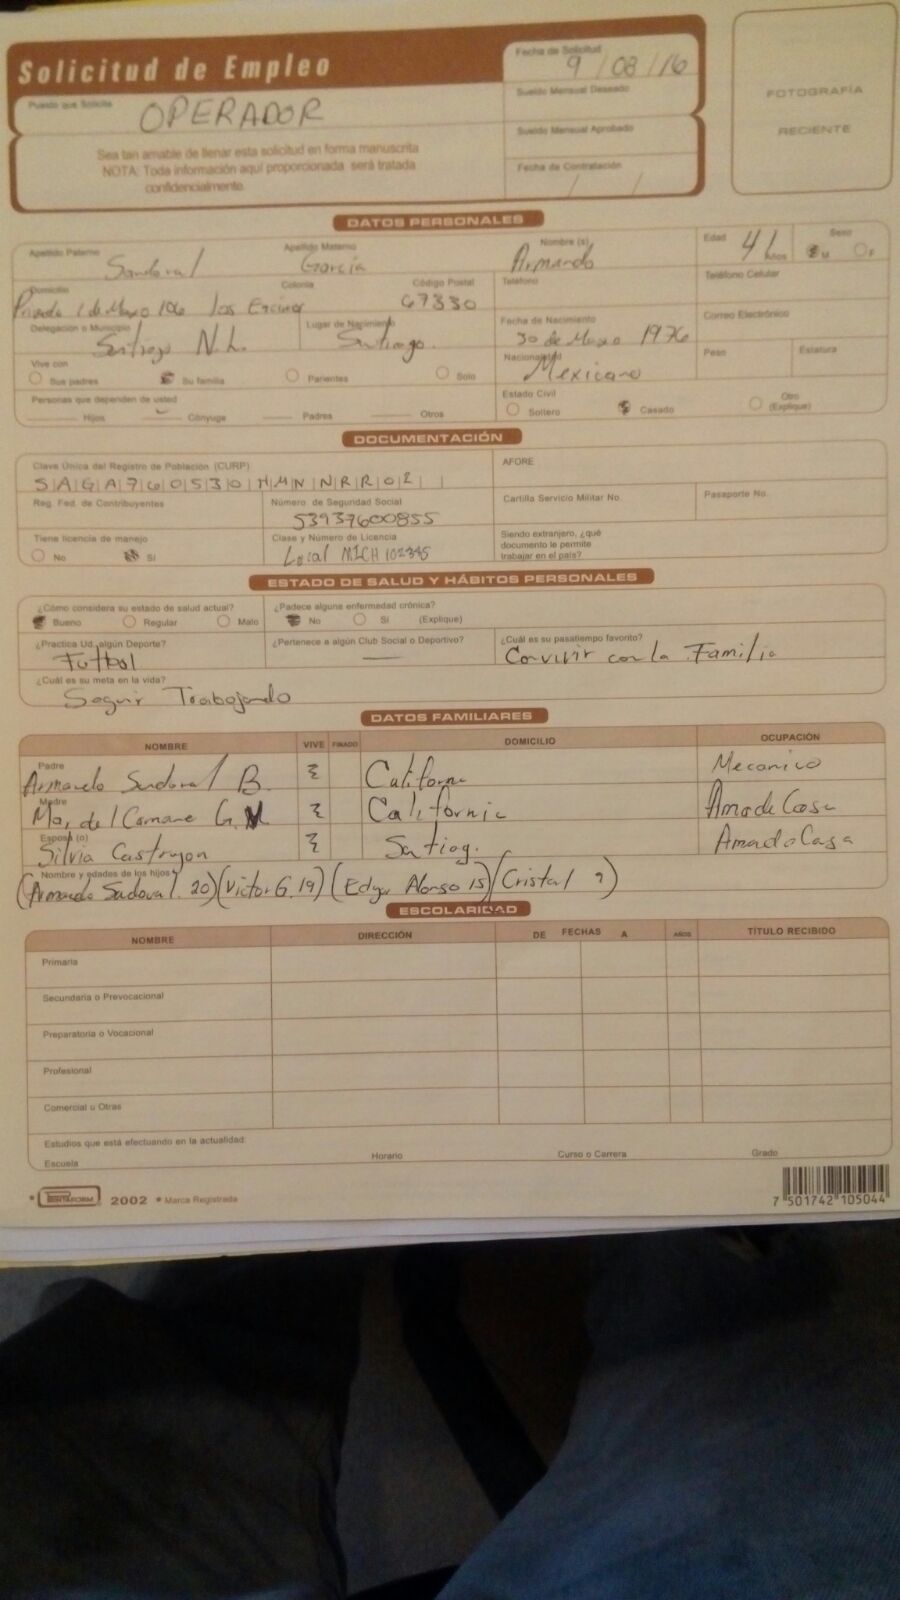 Solicitud de Empleo
Fecha de Solicitud
9 / 08 / 16
Puesto que Solicita
OPERADOR
Sueldo Mensual Deseado
Sueldo Mensual Aprobado
Fecha de Contratación
/ /
Sea tan amable de llenar esta solicitud en forma manuscrita
NOTA: Toda información aquí proporcionada será tratada
confidencialmente.
FOTOGRAFÍA
RECIENTE
DATOS PERSONALES
Apellido Paterno Apellido Materno Nombre (s) Edad Sexo
Sandoval García Armando 41 Años M F
Domicilio Colonia Código Postal Teléfono Teléfono Celular
Privada 1 de Mayo 106 los Encinos 67330
Delegación o Municipio Lugar de Nacimiento Fecha de Nacimiento Correo Electrónico
Santiago N.L. Santiago. 30 de 1976
Vive con Nacionalidad Peso Estatura
Mexicano
Sus padres Su familia Parientes Solo
Personas que dependen de usted Estado Civil
Hijos Cónyuge Padres Otros Soltero Casado Otro (Explique)
DOCUMENTACIÓN
Clave Única del Registro de Población (CURP) AFORE
SAGA760530HMNNRR02
Reg. Fed. de Contribuyentes Número de Seguridad Social Cartilla Servicio Militar No. Pasaporte No.
53937600855
Tiene licencia de manejo Clase y Número de Licencia Siendo extranjero, ¿qué
documento le permite
trabajar en el país?
No Si Local MICH 102345
ESTADO DE SALUD Y HÁBITOS PERSONALES
¿Cómo considera su estado de salud actual? ¿Padece alguna enfermedad crónica?
Bueno Regular Malo No Si (Explique)
¿Practica Ud. algún Deporte? ¿Pertenece a algún Club Social o Deportivo? ¿Cuál es su pasatiempo favorito?
Futbol — Convivir con la Familia
¿Cuál es su meta en la vida?
Seguir Trabajando
DATOS FAMILIARES
NOMBRE VIVE FINADO DOMICILIO OCUPACIÓN
Padre
Armando Sandoval B. California Mecanico
Madre
Ma. del G. California Ama de Casa
Esposa (o)
Silvia Castrejon Santiag. Ama de Casa
Nombre y edades de los hijos
(Armando Sandoval. 20) (Victor G. 19) (Edgar Alonso 15) (Cristal 9)
ESCOLARIDAD
NOMBRE DIRECCIÓN DE FECHAS A AÑOS TÍTULO RECIBIDO
Primaria
Secundaria o Prevocacional
Preparatoria o Vocacional
Profesional
Comercial u Otras
Estudios que está efectuando en la actualidad:
Escuela Horario Curso o Carrera Grado
PRINTAFORM 2002 * Marca Registrada
7 501742 105044